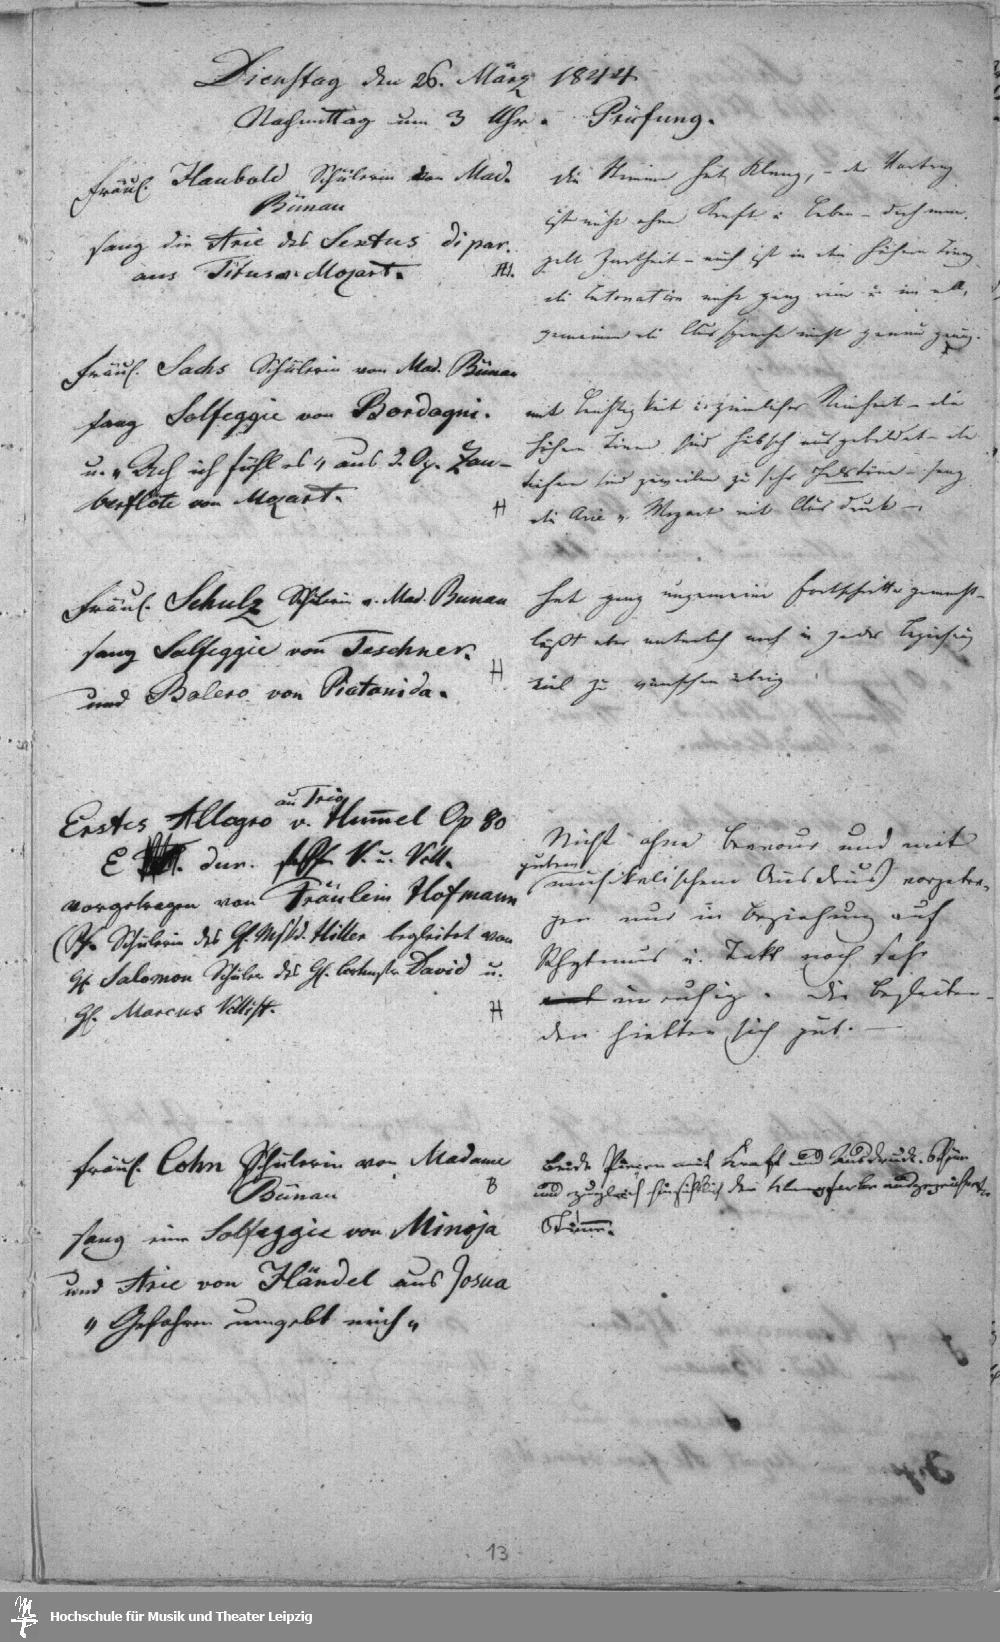 Dienstag den 26. März 1844
Nachmittag um 3 Uhr. Prüfung.
Fräul. Haubold Schülerin von Mad.
Bünau
sang die Arie des Sextus di par.
aus Titus v. Mozart.
die Stimme hat Klang, – der Vortrag
ist nicht ohne Kraft u. Leben – doch man-
gelt Zartheit – auch ist in den höhern Tönen
die Intonation nicht ganz rein u. im all-
gemeinen die Aussprache nicht genau genug.
Fräul. Sachs Schülerin von Mad. Bünau
sang Solfeggie von Bordogni.
u. "Ach ich fühl es" aus d. Op. Zau-
berflöte von Mozart.
H
mit Leichtigkeit u. ziemlicher Reinheit – die
höhern Töne sind hübsch ausgebildet – die
tiefern sind zuweilen zu sehr – sang
die Arie v. Mozart mit Ausdruck –.
Fräul. Schulz Schülerin v. Mad. Bunau
sang Solfeggie von Teschner.
und Bolero von Piatanida.
H
hat ganz ungemeine Fortschritte gemacht –
läßt aber natürlich noch in jeder Beziehung
viel zu wünschen übrig
Erstes Allegro au Trio v. Hummel Op 80
E dur. f. Pf. V. u. Vcll.
vorgetragen von Fräulein Hofmann
(Pf. Schülerin des H. Mskd. Hiller begleitet von
H. Salomon Schüler des H. Concertmstr David u.
H. Marcus Vcllist.
H
Nicht ohne Bravour und mit
gutem musikalischem Ausdruck vorgetra-
gen nur in Beziehung auf
Rhytmus u. Takt noch sehr
unruhig. Die Begleiten-
den hielten sich gut. –
Fräul. Cohn Schülerin von Madame
Bünau
B
sang eine Solfeggie von Minoja
und Arie von Händel aus Josua
"Gefahren umgebt mich"
Beide Piecen mit Kraft und Ausdruck. Schöne
und zugleich hinsichtlich der Klangfarbe ausgezeichnete
Stimme.
13
Hochschule für Musik und Theater Leipzig